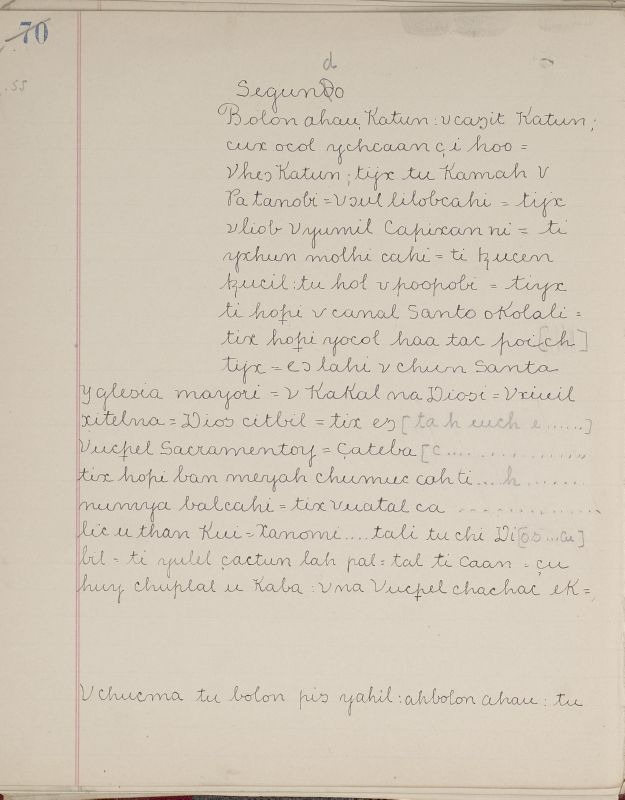 70
55
d
SegunDo
Bolon ahau Katun : v caɔit Katun ;
cux ocol ychcaan çi hoo =
Vheɔ Katun ; tijx tu Kamah V
Patanobi = Vɔul lilobcahi = tijx
vliob Vyumil Capixan ni = ti
yxhun molhi cahi = ti ꜩucen
ꜩucil : tu hol v poopobi = tiyx
ti hopi v canal Santo oKolali =
tix hopi yocol haa tac poi[ch]
tijx = eɔ lahi v chun Santa
yglesia mayori = v KaKal na Diosi = Vxiuil
xitelna = Dios citbil = tix eɔ [ta h uuch e ......]
Vucpel Sacramentoy = Çateba [c ..................
tix hopi ban meyah chumuc cah ti ... h .......
numya balcahi = tix vuatal ca ................
lic u than Kui = Xanomi .... tali tu chi Di[os ... cu]
bil = ti yulel çactun lah pal = tal ti caan = çu
huy chuplal u Kaba : vna Vucpel chachac eK =,
Vchucma tu bolon pis yahil : ahbolon ahau : tu